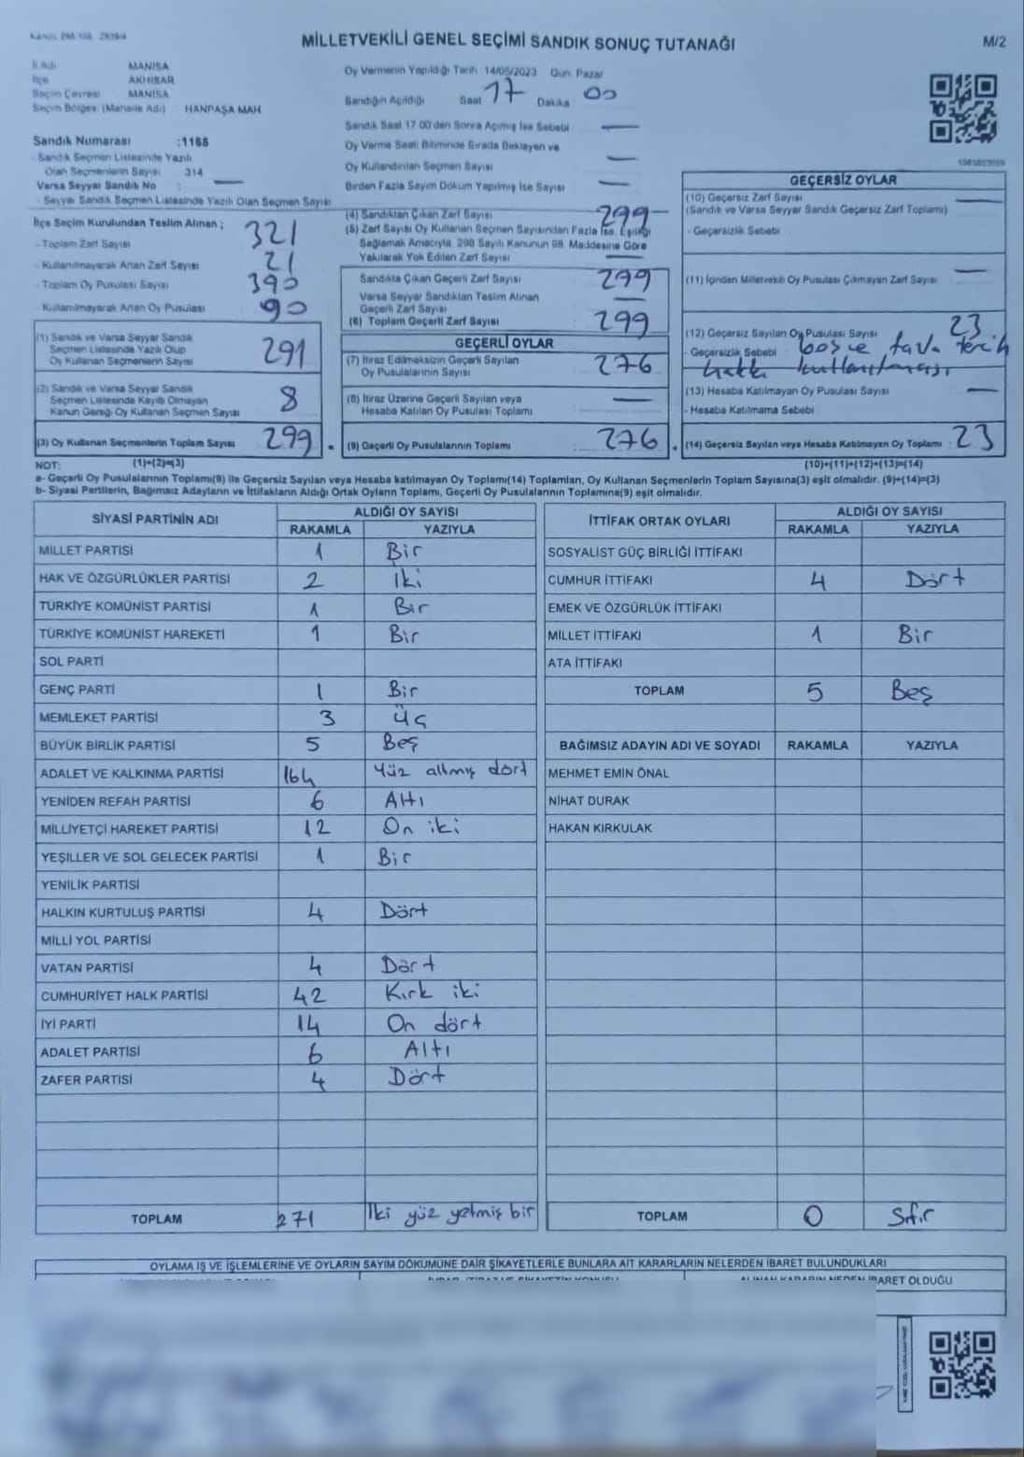 MİLLETVEKİLİ GENEL SEÇİMİ SANDIK SONUÇ TUTANAĞI
M/2
İl Adı MANİSA
İlçe AKHİSAR
Seçim Çevresi MANİSA
Seçim Bölgesi (Mahalle Adı) HANPAŞA MAH
Sandık Numarası :1168
Sandık Seçmen Listesinde Yazılı
Olan Seçmenlerin Sayısı 314
Varsa Seyyar Sandık No —
Seyyar Sandık Seçmen Listesinde Yazılı Olan Seçmen Sayısı
Oy Vermenin Yapıldığı Tarih 14/05/2023 Gün Pazar
Sandığın Açıldığı Saat 17 Dakika 00
Sandık Saat 17 00'den Sonra Açılmış İse Sebebi —
Oy Verme Saati Bitiminde Sırada Bekleyen ve
Oy Kullandırılan Seçmen Sayısı —
Birden Fazla Sayım Döküm Yapılmış İse Sayısı —
İlçe Seçim Kurulundan Teslim Alınan ;
- Toplam Zarf Sayısı 321
- Kullanılmayarak Artan Zarf Sayısı 21
- Toplam Oy Pusulası Sayısı 390
- Kullanılmayarak Artan Oy Pusulası 90
(1) Sandık ve Varsa Seyyar Sandık
Seçmen Listesinde Yazılı Olup
Oy Kullanan Seçmenlerin Sayısı 291
(2) Sandık ve Varsa Seyyar Sandık
Seçmen Listesinde Kayıtlı Olmayan
Kanun Gereği Oy Kullanan Seçmen Sayısı 8
(3) Oy Kullanan Seçmenlerin Toplam Sayısı 299
(4) Sandıktan Çıkan Zarf Sayısı 299
(5) Zarf Sayısı Oy Kullanan Seçmen Sayısından Fazla İse, Eşitliği
Sağlamak Amacıyla, 298 Sayılı Kanunun 98. Maddesine Göre
Yakılarak Yok Edilen Zarf Sayısı
Sandıkta Çıkan Geçerli Zarf Sayısı 299
Varsa Seyyar Sandıktan Teslim Alınan
Geçerli Zarf Sayısı —
(6) Toplam Geçerli Zarf Sayısı 299
GEÇERLİ OYLAR
(7) İtiraz Edilmeksizin Geçerli Sayılan
Oy Pusulalarının Sayısı 276
(8) İtiraz Üzerine Geçerli Sayılan veya
Hesaba Katılan Oy Pusulası Toplamı —
(9) Geçerli Oy Pusulalarının Toplamı 276
GEÇERSİZ OYLAR
(10) Geçersiz Zarf Sayısı
(Sandık ve Varsa Seyyar Sandık Geçersiz Zarf Toplamı) —
- Geçersizlik Sebebi
(11) İçinden Milletvekili Oy Pusulası Çıkmayan Zarf Sayısı —
(12) Geçersiz Sayılan Oy Pusulası Sayısı 23
- Geçersizlik Sebebi boş ve fazla tercih
hakkı kullanılması
(13) Hesaba Katılmayan Oy Pusulası Sayısı —
- Hesaba Katılmama Sebebi
(14) Geçersiz Sayılan veya Hesaba Katılmayan Oy Toplamı 23
NOT: (1)+(2)=(3)
(10)+(11)+(12)+(13)=(14)
a- Geçerli Oy Pusulalarının Toplamı(9) ile Geçersiz Sayılan veya Hesaba katılmayan Oy Toplamı(14) Toplamları, Oy Kullanan Seçmenlerin Toplam Sayısına(3) eşit olmalıdır. (9)+(14)=(3)
b- Siyasi Partilerin, Bağımsız Adayların ve İttifakların Aldığı Ortak Oyların Toplamı, Geçerli Oy Pusulalarının Toplamına(9) eşit olmalıdır.
SİYASİ PARTİNİN ADI ALDIĞI OY SAYISI
RAKAMLA YAZIYLA
MİLLET PARTİSİ 1 Bir
HAK VE ÖZGÜRLÜKLER PARTİSİ 2 İki
TÜRKİYE KOMÜNİST PARTİSİ 1 Bir
TÜRKİYE KOMÜNİST HAREKETİ 1 Bir
SOL PARTİ
GENÇ PARTİ 1 Bir
MEMLEKET PARTİSİ 3 Üç
BÜYÜK BİRLİK PARTİSİ 5 Beş
ADALET VE KALKINMA PARTİSİ 164 Yüz altmış dört
YENİDEN REFAH PARTİSİ 6 Altı
MİLLİYETÇİ HAREKET PARTİSİ 12 On iki
YEŞİLLER VE SOL GELECEK PARTİSİ 1 Bir
YENİLİK PARTİSİ
HALKIN KURTULUŞ PARTİSİ 4 Dört
MİLLİ YOL PARTİSİ
VATAN PARTİSİ 4 Dört
CUMHURİYET HALK PARTİSİ 42 Kırk iki
İYİ PARTİ 14 On dört
ADALET PARTİSİ 6 Altı
ZAFER PARTİSİ 4 Dört
TOPLAM 271 İki yüz yetmiş bir
İTTİFAK ORTAK OYLARI ALDIĞI OY SAYISI
RAKAMLA YAZIYLA
SOSYALİST GÜÇ BİRLİĞİ İTTİFAKI
CUMHUR İTTİFAKI 4 Dört
EMEK VE ÖZGÜRLÜK İTTİFAKI
MİLLET İTTİFAKI 1 Bir
ATA İTTİFAKI
TOPLAM 5 Beş
BAĞIMSIZ ADAYIN ADI VE SOYADI RAKAMLA YAZIYLA
MEHMET EMİN ÖNAL
NİHAT DURAK
HAKAN KIRKULAK
TOPLAM 0 Sıfır
OYLAMA İŞ VE İŞLEMLERİNE VE OYLARIN SAYIM DÖKÜMÜNE DAİR ŞİKAYETLERLE BUNLARA AİT KARARLARIN NELERDEN İBARET BULUNDUKLARI